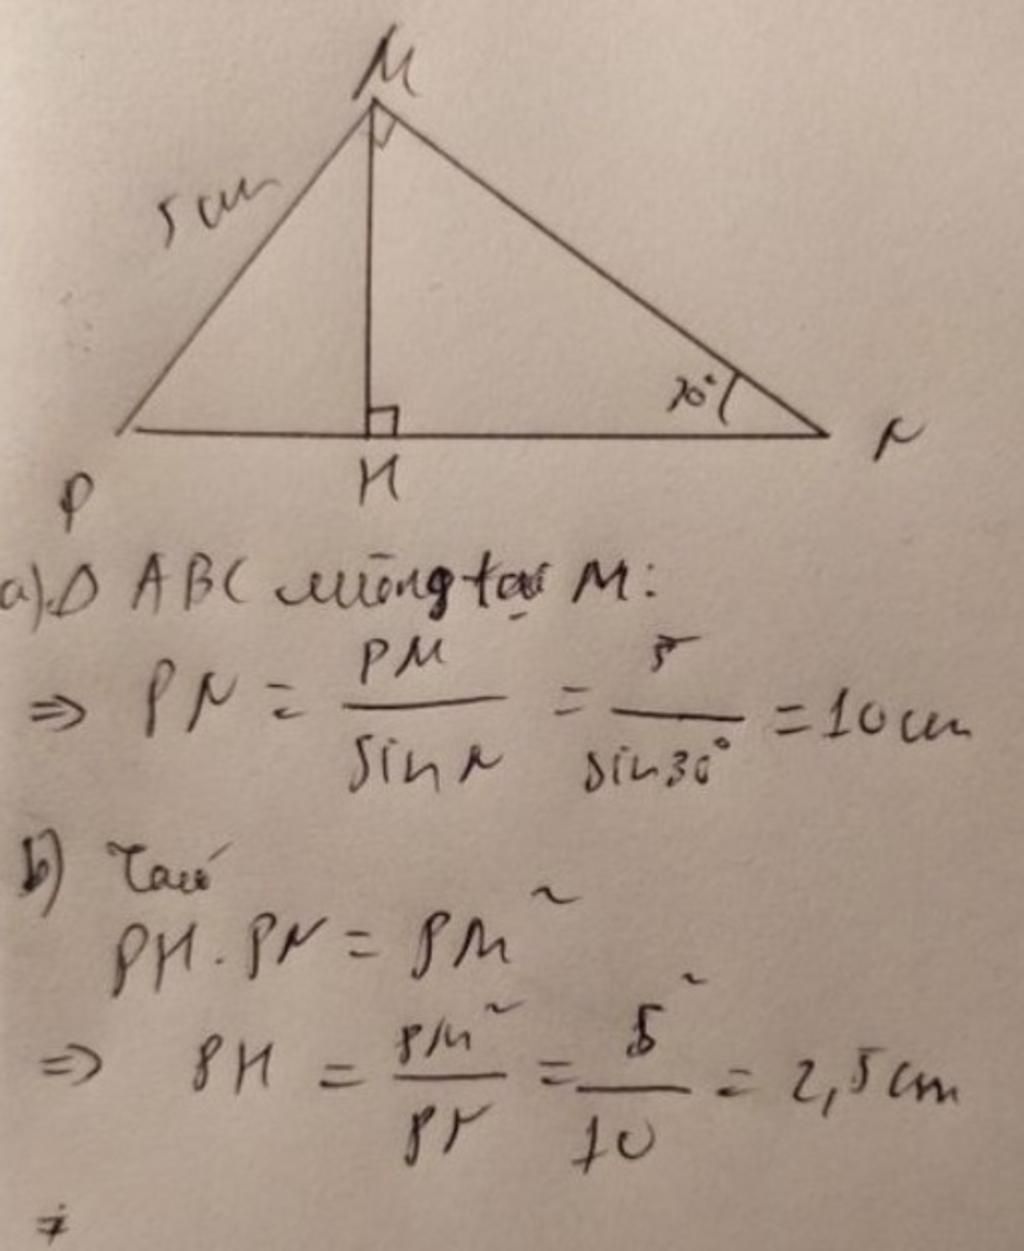 M
5 cm
30°
N
P
H
a) Δ ABC vuông tại M:
⇒ PN = PM / sin N = 5 / sin 30° = 10 cm
b) Ta có
PH . PN = PM²
⇒ PH = PM² / PN = 5² / 10 = 2,5 cm